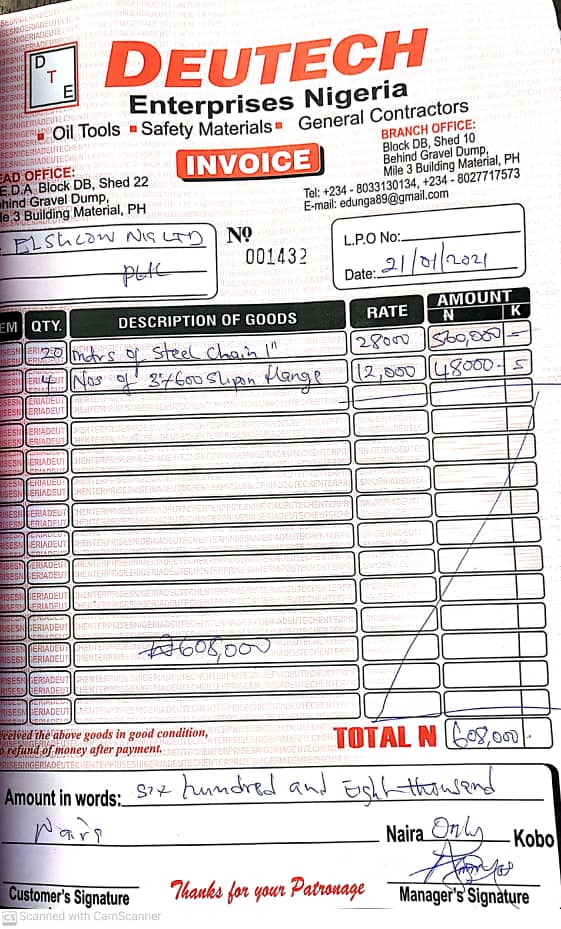 D
T
E
DEUTECH
Enterprises Nigeria
Oil Tools Safety Materials General Contractors
INVOICE
EAD OFFICE:
E.D.A Block DB, Shed 22
ehind Gravel Dump,
le 3 Building Material, PH
BRANCH OFFICE:
Block DB, Shed 10
Behind Gravel Dump,
Mile 3 Building Material, PH
Tel: +234 - 8033130134, +234 - 8027717573
E-mail: edunga89@gmail.com
NIG LTD
PHC
Nº
001432
L.P.O No:
Date: 21/01/2021
EM QTY. DESCRIPTION OF GOODS RATE AMOUNT
N K
20 mtrs of Steel Chain 1" 28000 560,000 =
4 Nos of Slipon flange 12,000 48000 -
₦608,000
eceived the above goods in good condition,
o refund of money after payment.
TOTAL N 608,000 -
Amount in words: Six hundred and Eight thousand
Naira Naira Only Kobo
Customer's Signature Thanks for your Patronage Manager's Signature
CS Scanned with CamScanner